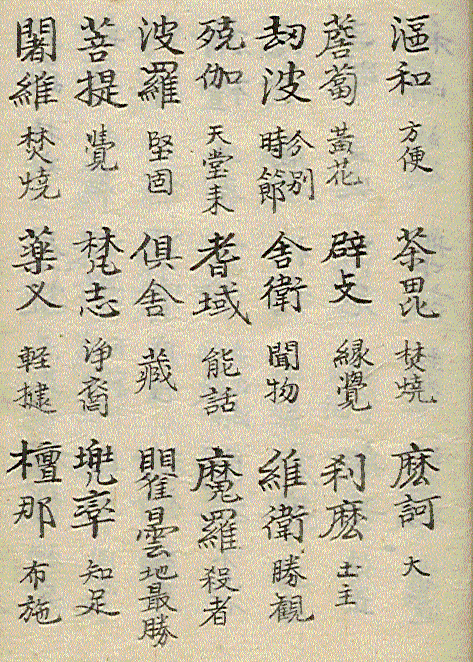 漚和 方便 荼毘 焚燒 麽訶 大
薝蔔 黃花 辟支 緣覺 刹麽 土主
劫波 分別時節 舍衛 聞物 維衛 勝観
殑伽 天堂来 耆域 能活 魔羅 殺者
波羅 堅固 俱舍 藏 瞿曇 地最勝
菩提 覺 梵志 浄裔 兜率 知足
闍維 焚燒 薬叉 軽捷 檀那 布施